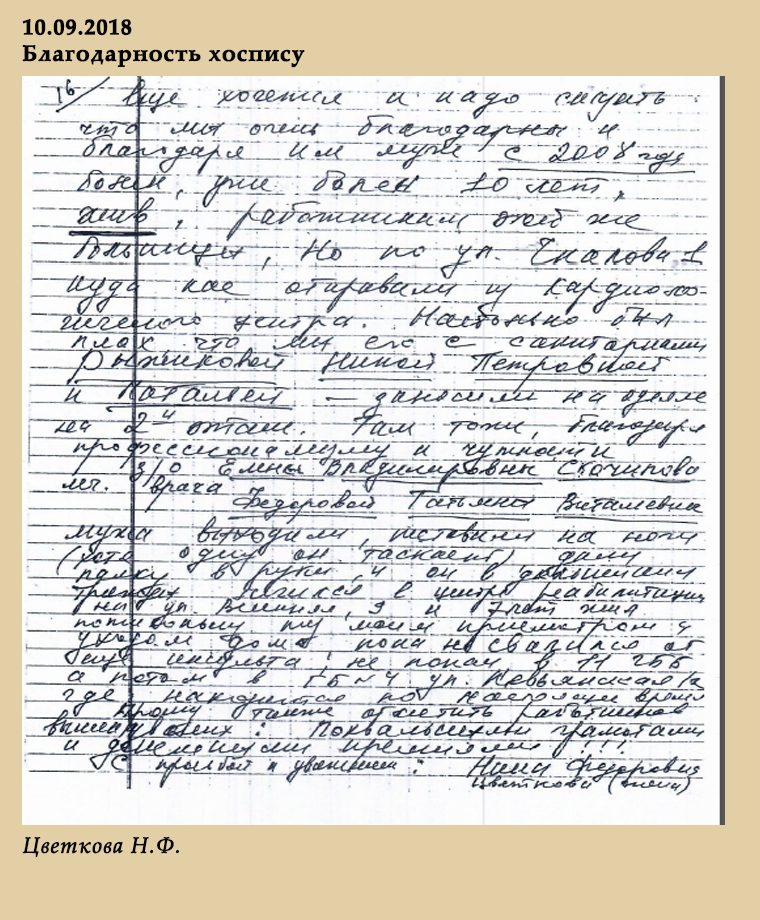 10.09.2018
Благодарность хоспису
16/ Еще хочется и надо сказать
что мы очень благодарны и
благодаря им муж с 2008 года
болен, уже болен 10 лет,
жив, работникам этой же
больницы, но по ул. Чкалова 1
куда нас отправили из кардиоло-
гического центра. Настолько был
плох что мы его с санитарками
Рыжиковой Ниной Петровной
и Натальей — заносили на одеяле
на 2й этаж. Там тоже, благодаря
профессионализму и чуткости
з/о Елены Владимировны
леч. врача
Федоровой Татьяны Витальевны
мужа выходили, поставили на ноги
(хотя одну он таскает) дали
палку в руки, и он в дальнейшем
лечился в центре реабилитации
на ул. 9 и 7 лет жил
под моим присмотром и
уходом дома, пока не свалился от
еще инсульта, не попал в 11 ГББ
а потом в ГБ №4 ул. Невьянская
где находится по настоящее время
Прошу также отметить работников
: Похвальными грамотами
и денежными премиями!!!
С просьбой и уважением: Нина Федоровна
Цветкова (жена)
Цветкова Н.Ф.